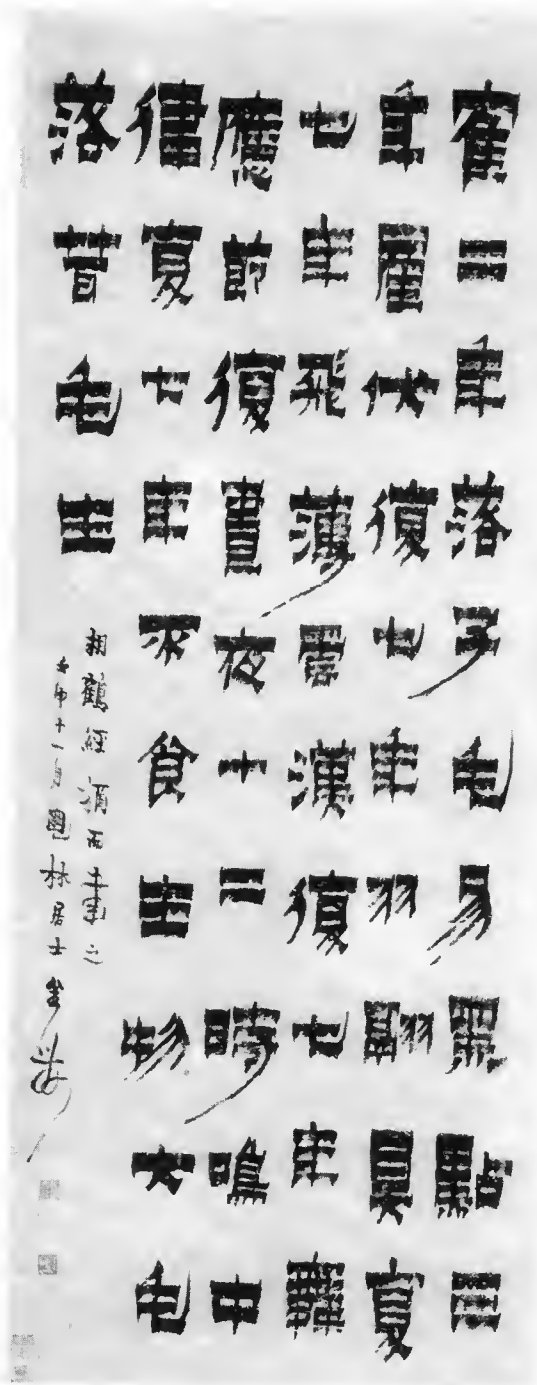 寉二年落子毛易黑點三
年產伏復七年羽翮具復
七年飛薄雲漢復七年舞
應節復晝夜十二時鳴中
律復七年不食生物大毛
落茸毛生
相鶴經 而書之
十一月 林居士金農